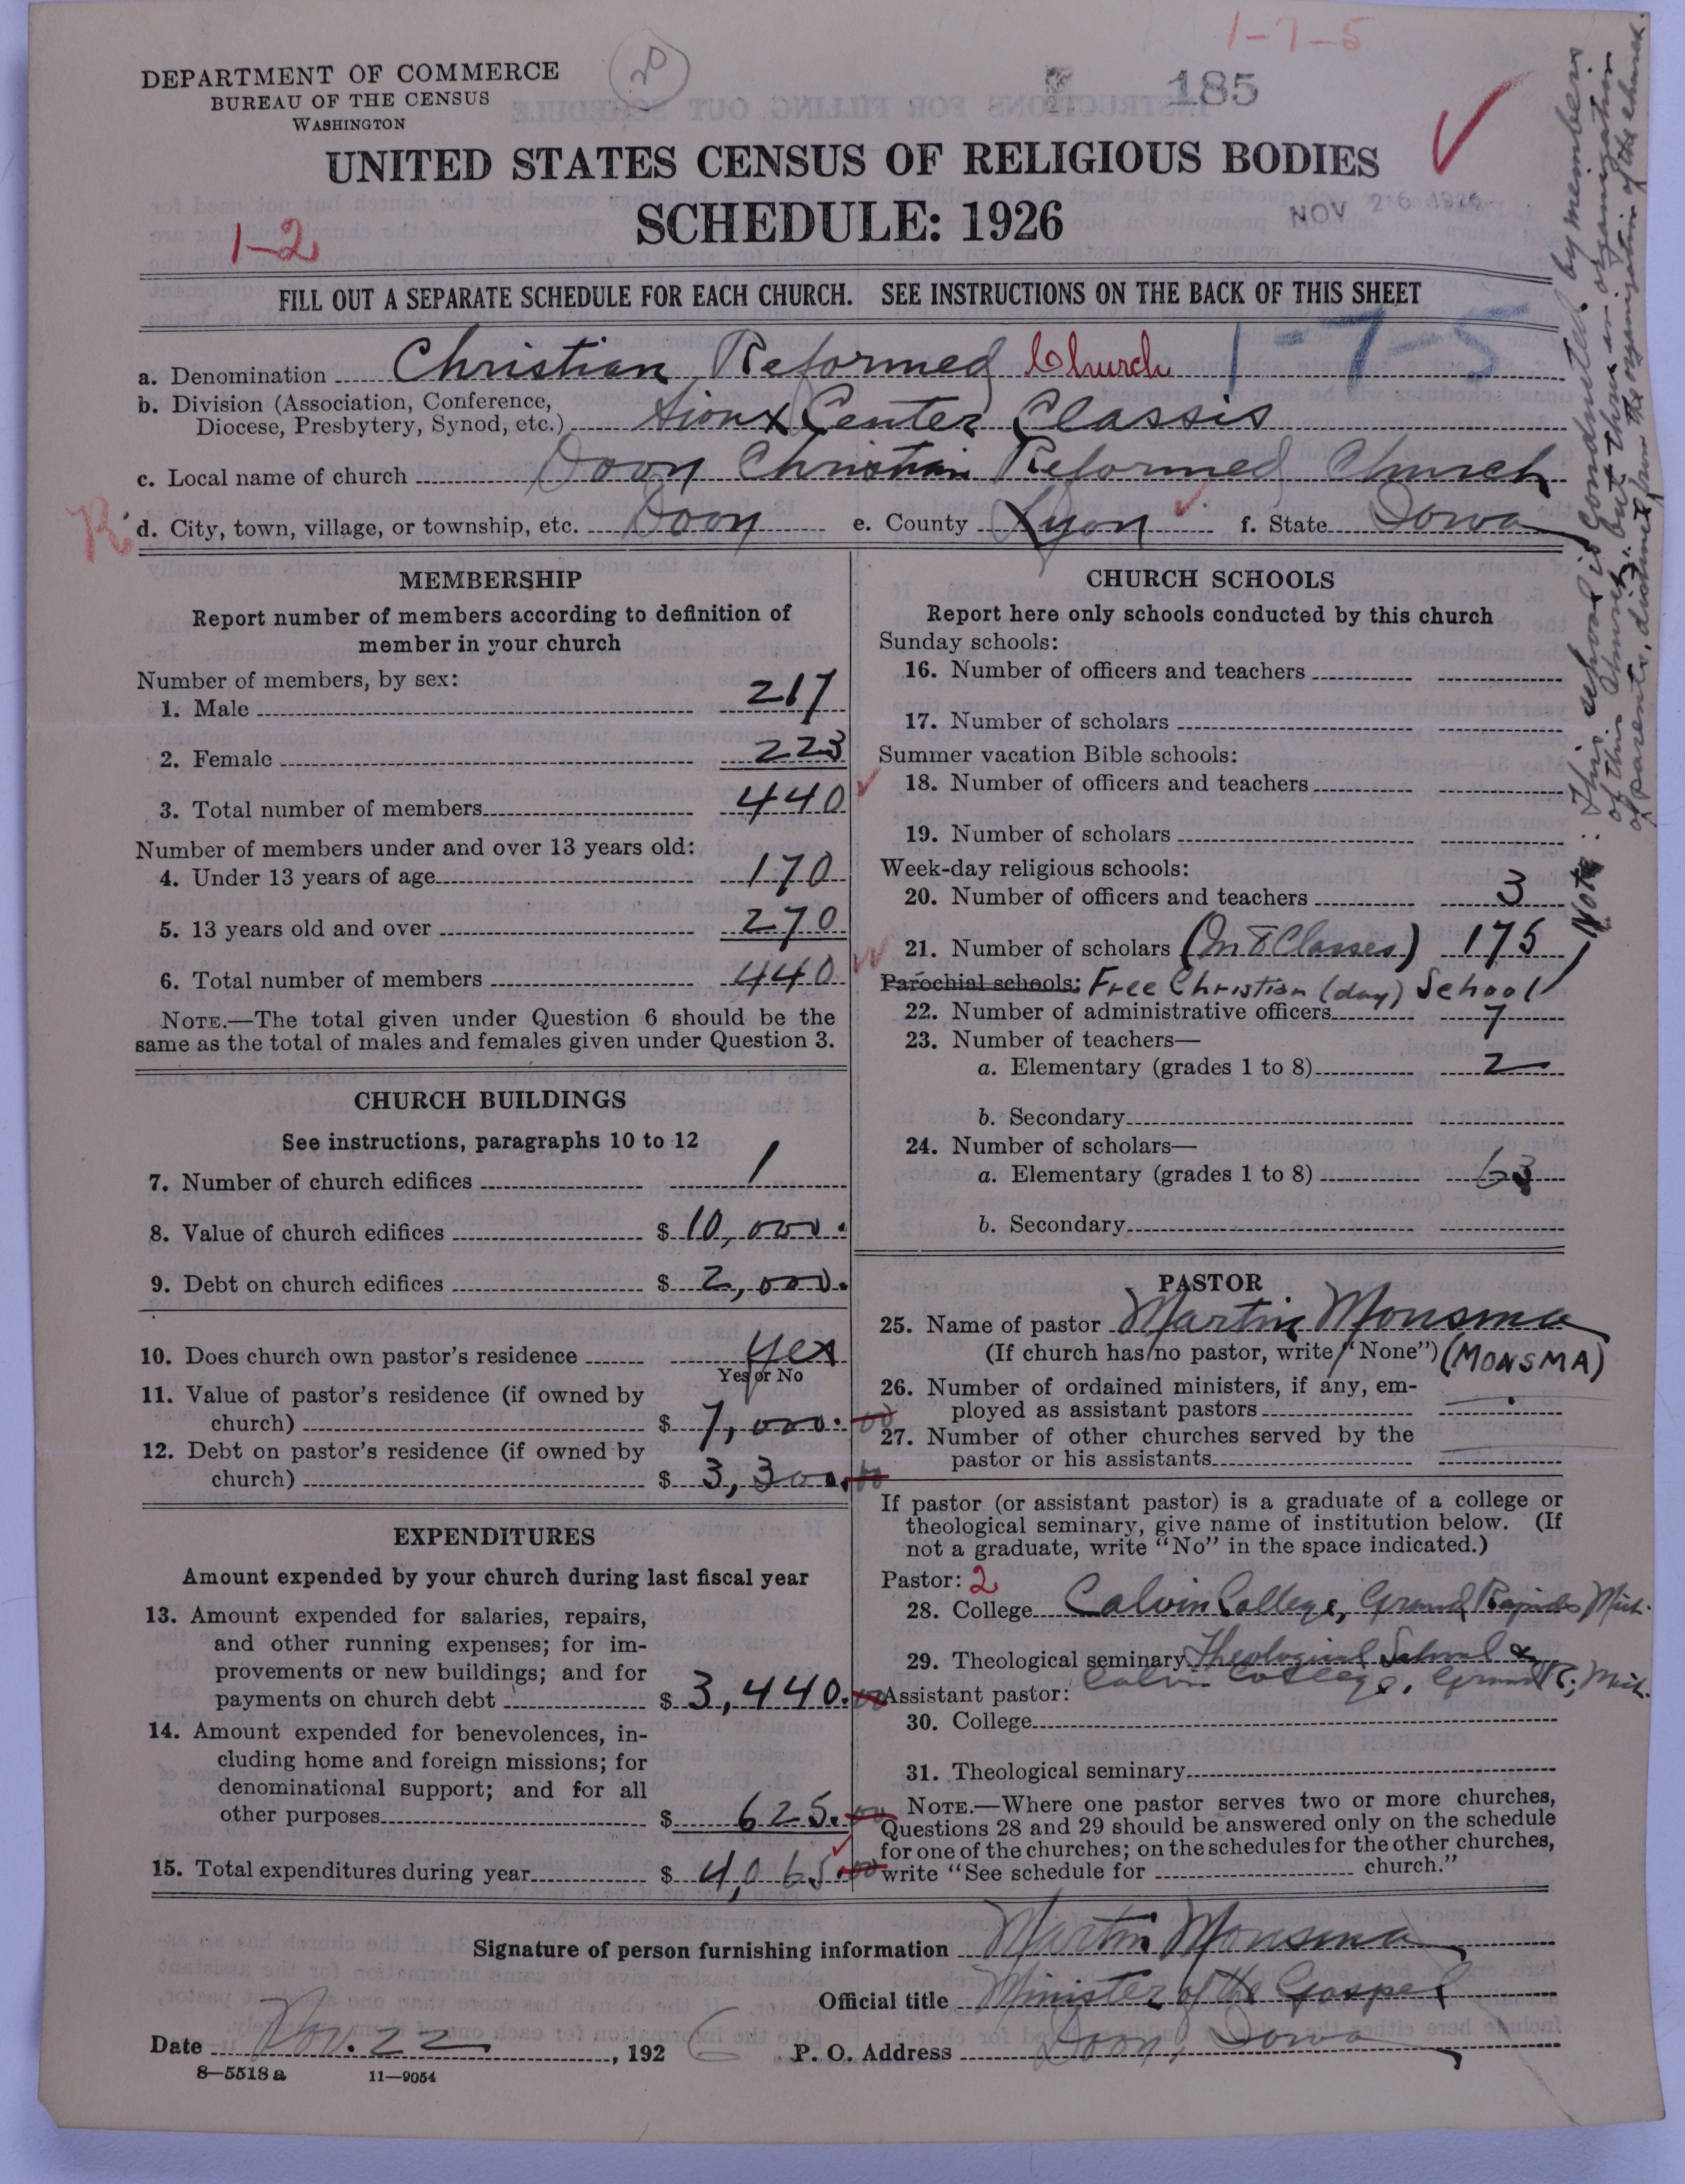 1-7-5
20
185
DEPARTMENT OF COMMERCE
BUREAU OF THE CENSUS
WASHINGTON
UNITED STATES CENSUS OF RELIGIOUS BODIES
SCHEDULE: 1926
NOV 26 1926
1-2
FILL OUT A SEPARATE SCHEDULE FOR EACH CHURCH. SEE INSTRUCTIONS ON THE BACK OF THIS SHEET
1-7-5
a. Denomination Christian Reformed Church
b. Division (Association, Conference,
Diocese, Presbytery, Synod, etc.) Sioux Center Classis
c. Local name of church Doon Christian Reformed Church
R
d. City, town, village, or township, etc. Doon e. County Lyon f. State Iowa
MEMBERSHIP
Report number of members according to definition of
member in your church
Number of members, by sex:
1. Male 217
2. Female 223
3. Total number of members 440
Number of members under and over 13 years old:
4. Under 13 years of age 170
5. 13 years old and over 270
6. Total number of members 440
NOTE.—The total given under Question 6 should be the
same as the total of males and females given under Question 3.
CHURCH BUILDINGS
See instructions, paragraphs 10 to 12
7. Number of church edifices 1
8. Value of church edifices $ 10,000.
9. Debt on church edifices $ 2,000.
10. Does church own pastor's residence yes
Yes or No
11. Value of pastor's residence (if owned by
church) $ 7,000.00
12. Debt on pastor's residence (if owned by
church) $ 3,300.00
EXPENDITURES
Amount expended by your church during last fiscal year
13. Amount expended for salaries, repairs,
and other running expenses; for im-
provements or new buildings; and for
payments on church debt $ 3,440.00
14. Amount expended for benevolences, in-
cluding home and foreign missions; for
denominational support; and for all
other purposes $ 625.00
15. Total expenditures during year $ 4,065.00
CHURCH SCHOOLS
Report here only schools conducted by this church
Sunday schools:
16. Number of officers and teachers
17. Number of scholars
Summer vacation Bible schools:
18. Number of officers and teachers
19. Number of scholars
Week-day religious schools:
20. Number of officers and teachers 3
21. Number of scholars (In 8 Classes) 175
Parochial schools: Free Christian (day) School
22. Number of administrative officers 7
23. Number of teachers—
a. Elementary (grades 1 to 8) 2
b. Secondary
24. Number of scholars—
a. Elementary (grades 1 to 8) 63
b. Secondary
PASTOR
25. Name of pastor Martin Monsma
(If church has no pastor, write "None") (MONSMA)
26. Number of ordained ministers, if any, em-
ployed as assistant pastors
27. Number of other churches served by the
pastor or his assistants
If pastor (or assistant pastor) is a graduate of a college or
theological seminary, give name of institution below. (If
not a graduate, write "No" in the space indicated.)
Pastor: 2
28. College Calvin College, Grand Rapids Mich.
29. Theological seminary Theological School &
Calvin College, Grand R., Mich.
Assistant pastor:
30. College
31. Theological seminary
NOTE.—Where one pastor serves two or more churches,
Questions 28 and 29 should be answered only on the schedule
for one of the churches; on the schedules for the other churches,
write "See schedule for church."
Signature of person furnishing information Martin Monsma
Official title Minister of the Gospel
Date Nov. 22, 1926 P. O. Address Doon, Iowa
8—5518 a 11—9054
Note: This school is conducted by members
of this church, but thru an organization
of parents, distinct from the organization of the church.